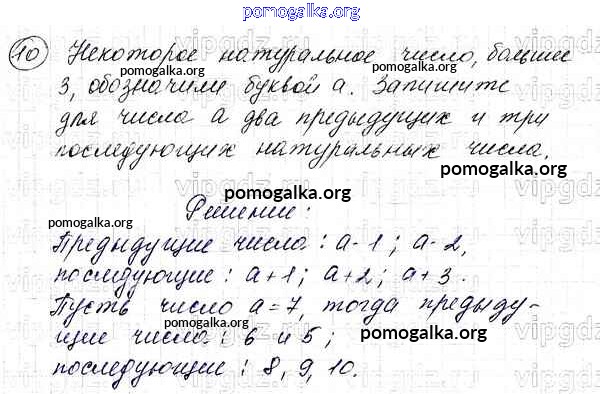 pomogalka.org
10 Некоторое натуральное число, большее
pomogalka.org
3, обозначили буквой а. Запишите
для числа а два предыдущих и три
последующих натуральных числа.
pomogalka.org
pomogalka.org
pomogalka.org
Решение:
Предыдущие числа: а-1; а-2,
последующие: а+1; а+2; а+3.
pomogalka.org
Пусть число а=7, тогда предыду-
pomogalka.org
щие числа: 6 и 5;
pomogalka.org
последующие: 8, 9, 10.
pomogalka.org